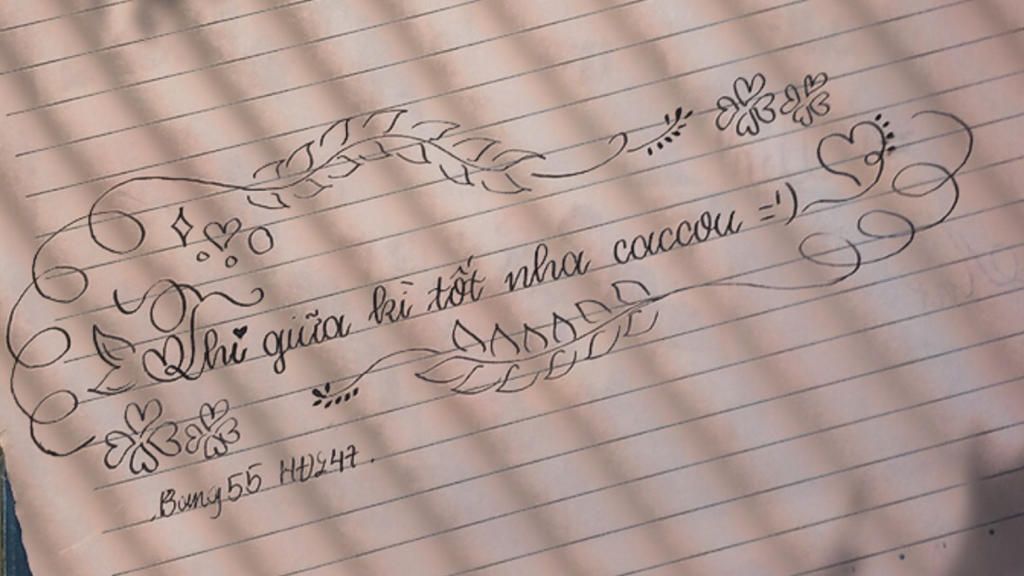 Thi giữa kì tốt nha caccou =')
Bang55 HĐS47.